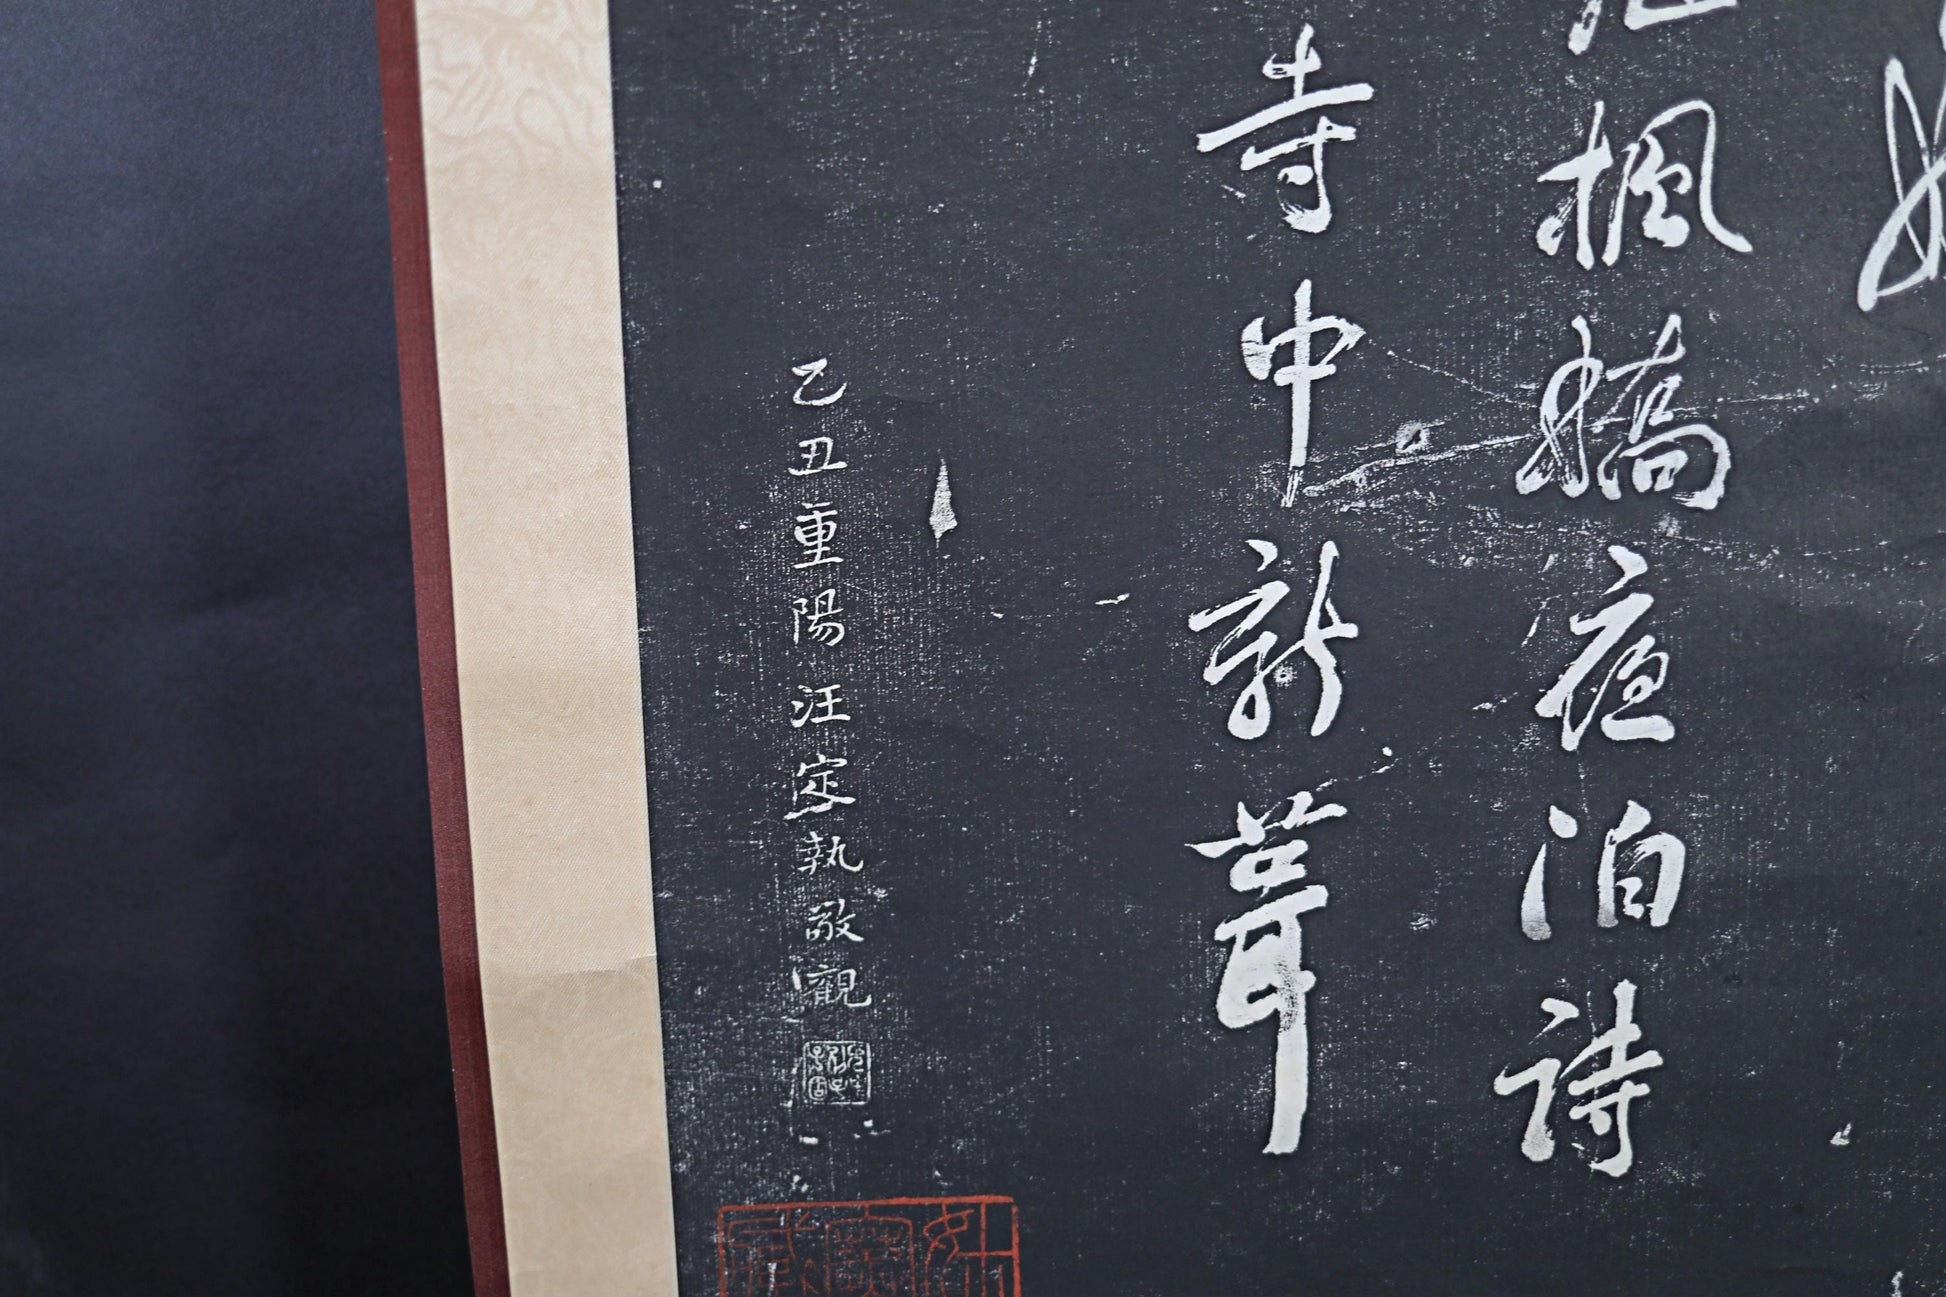 楓橋夜泊詩
寺中新葺
乙丑重陽汪定執敬觀